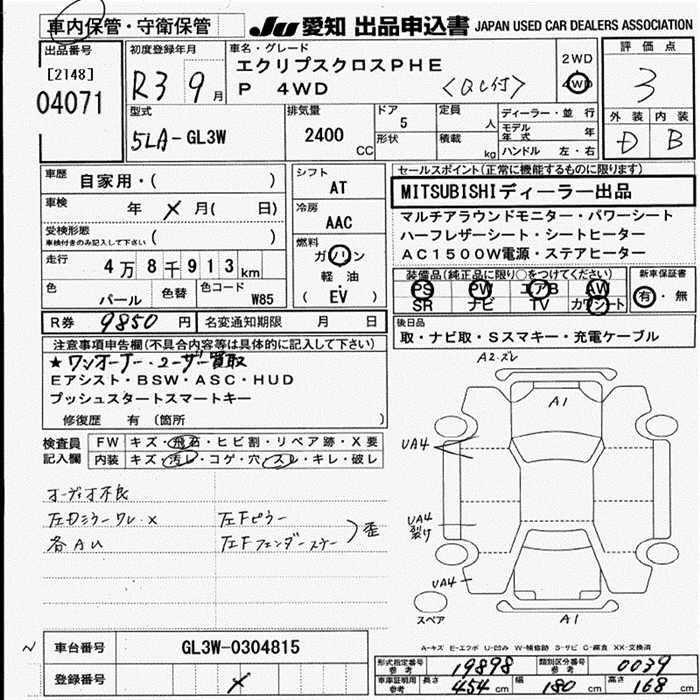 車内保管・守衛保管
JU 愛知 出品申込書 JAPAN USED CAR DEALERS ASSOCIATION
出品番号
[2148]
04071
初度登録年月
R3 9月
車名・グレード
エクリプスクロスPHE
P 4WD <QC付>
2WD
4WD
評価点
3
外装 内装
D B
型式
5LA-GL3W
排気量
2400 CC
ドア
5
形状
定員
人
積載
kg
ディーラー・並行
モデル年式 年
ハンドル 左・右
車歴
自家用・( )
車検
年 X 月( 日)
受検形態
車検付きのみ記入して下さい ( )
走行
4万8千913km
色
パール
色替
色コード
W85
シフト
AT
冷房
AAC
燃料
ガソリン
軽油
・
( EV )
R券 9850 円 名変通知期限 月 日
セールスポイント(正常に機能するものに限ります)
MITSUBISHIディーラー出品
マルチアラウンドモニター・パワーシート
ハーフレザーシート・シートヒーター
AC1500W電源・ステアヒーター
装備品(純正品に限り○をつけてください)
PS PW エアB AW
SR ナビ TV カワシート
新車保証書
有・無
後日品
取・ナビ取・Sスマキー・充電ケーブル
注意事項申告欄(不具合内容等は具体的に記入して下さい)
★ワンオーナー・ユーザー買取
Eアシスト・BSW・ASC・HUD
プッシュスタートスマートキー
修復歴 有 (箇所 )
検査員記入欄
FW キズ・飛石・ヒビ割・リペア跡・X要
内装 キズ・汚レ・コゲ・穴・スレ・キレ・破レ
オーディオ不良
左Dミラーワレ・X
各AU
左Fピラー
左Fフェンダーステー
歪
A2・ズレ
A1
UA4
UA4
裂け
UA4
A1
スペア
A-キズ E-エクボ U-凹み W-補修跡 S-サビ C-腐食 XX-交換済
車台番号 GL3W-0304815
登録番号 X
形式指定番号 参考 19898 類別区分番号 参考 0039
車庫証明用 参考 長さ 454 cm 幅 180 cm 高さ 168 cm